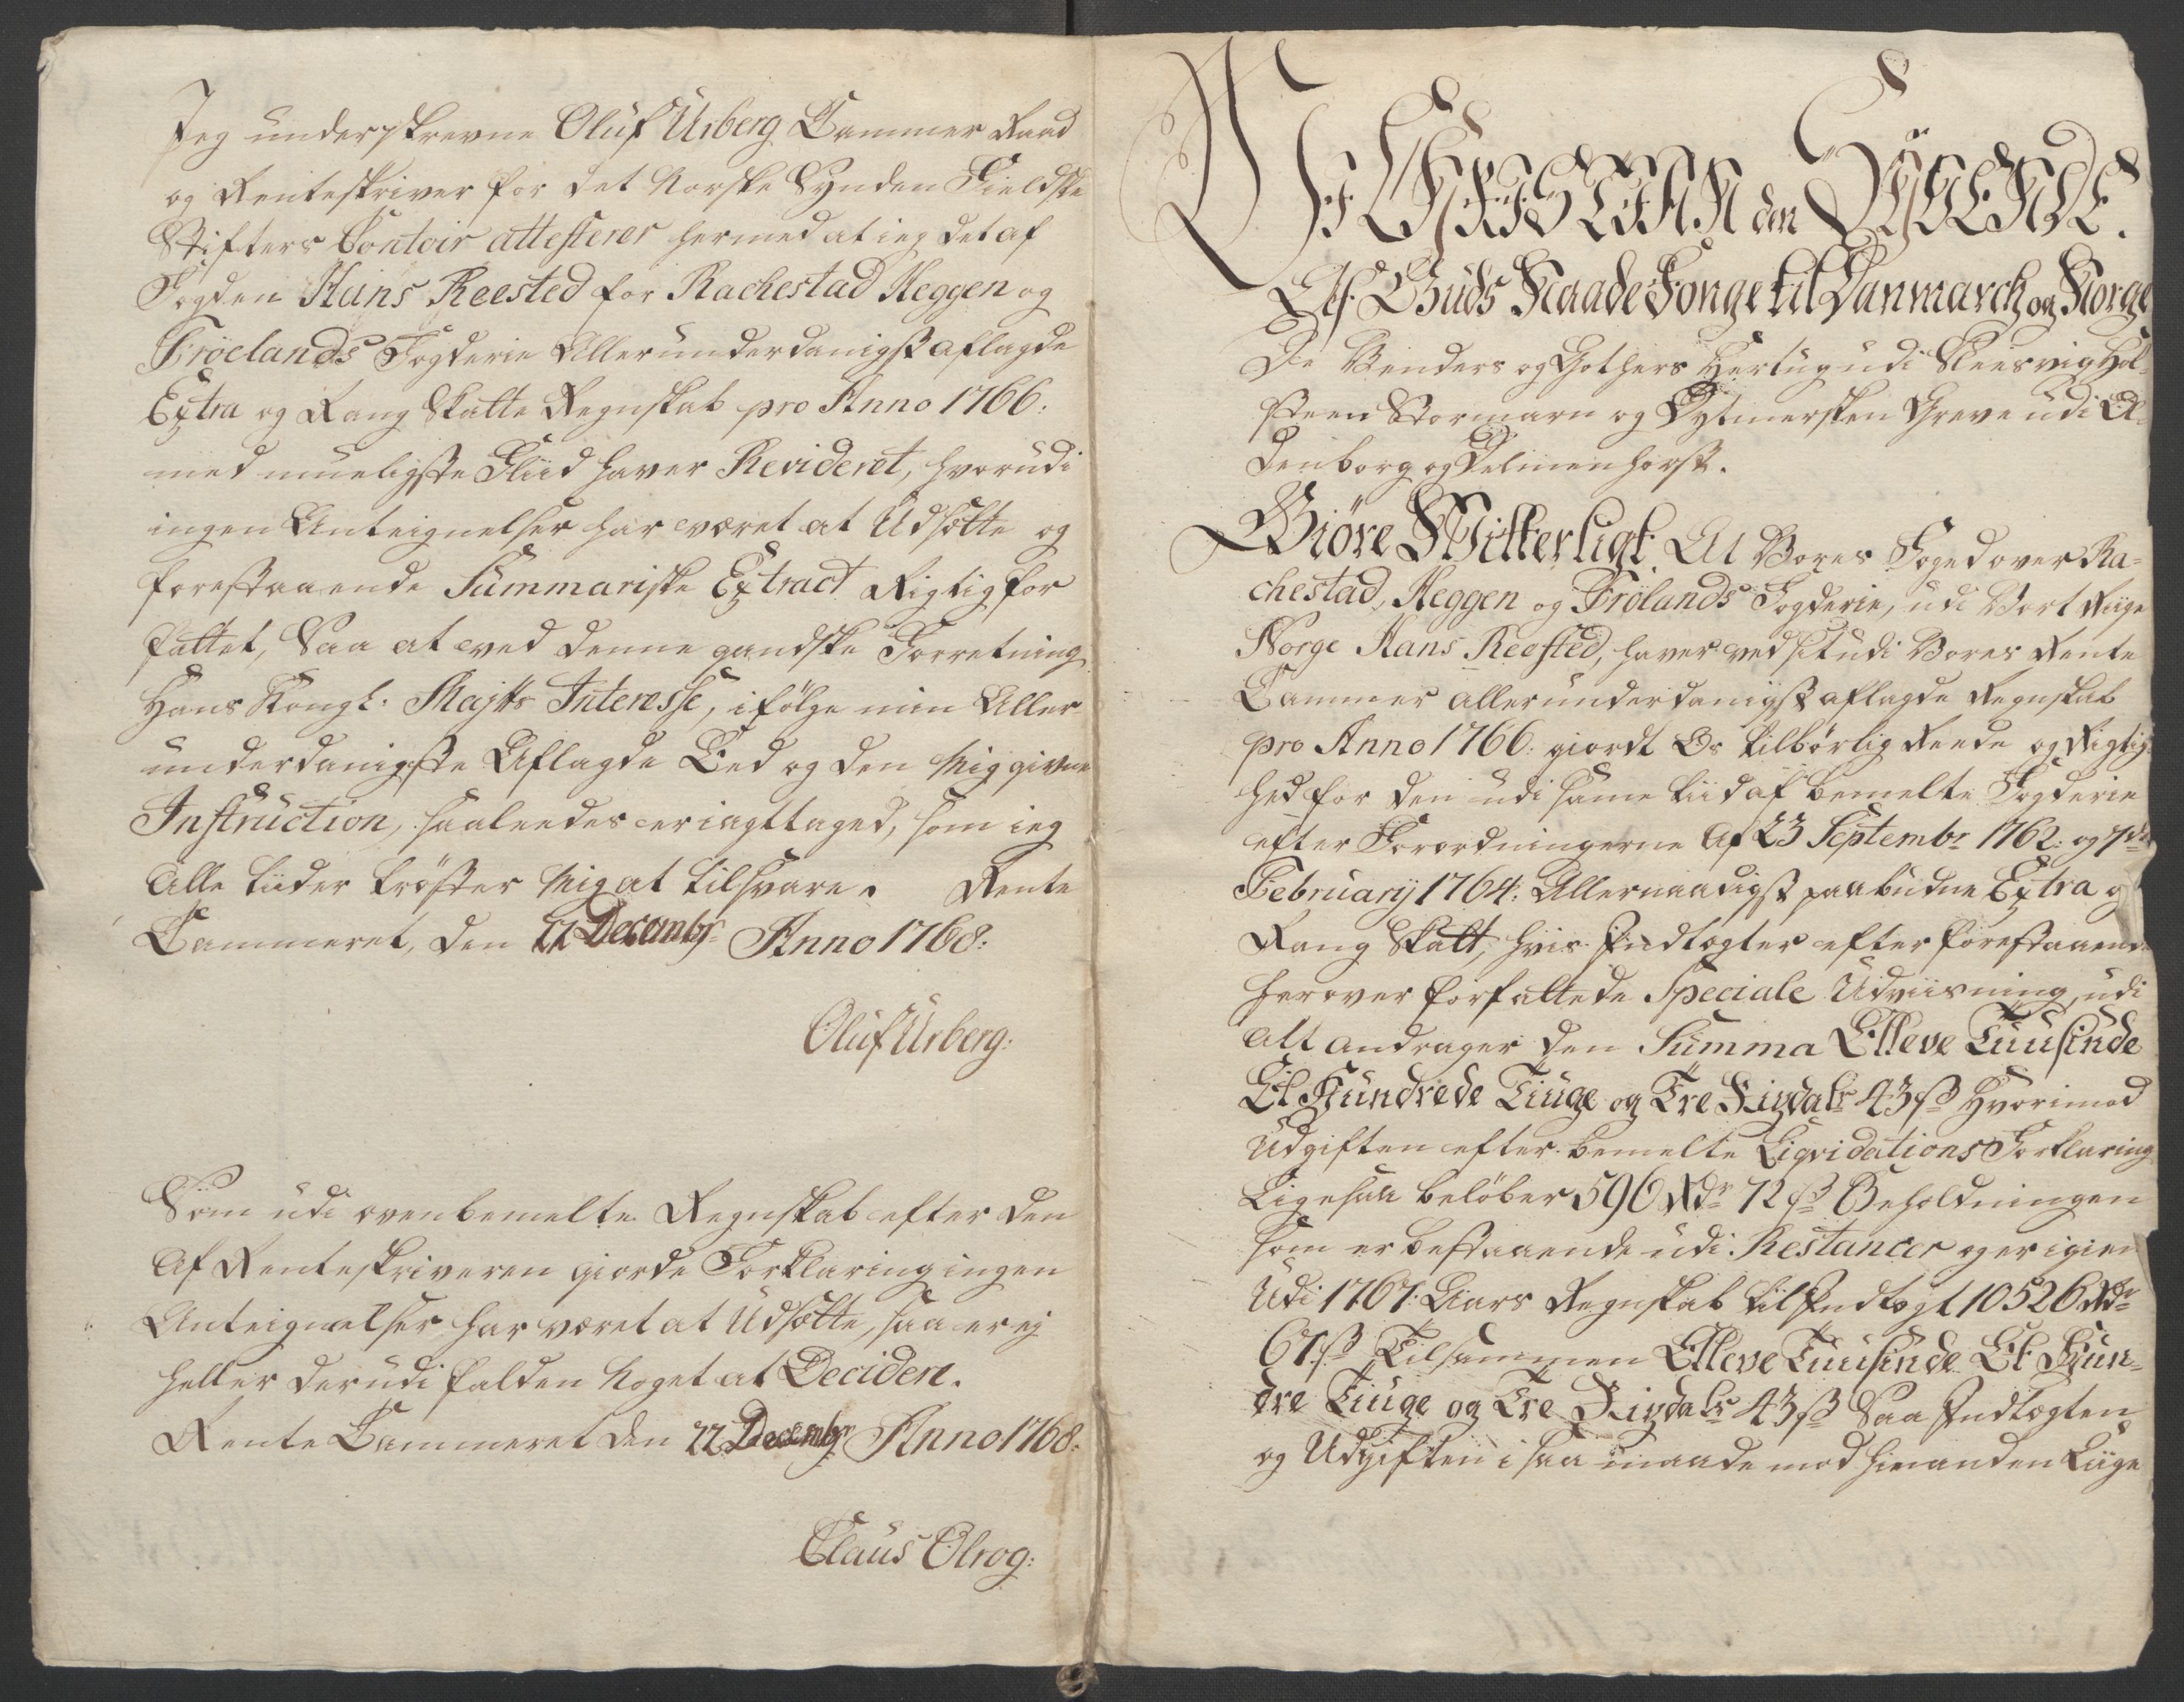 Jeg underskrevne Oluf Urberg Cammer Raad
og Renteskriver for det Norske Synden Fieldske
Stifters Contoir attesterer hermed at ieg det af
Fogden Hans Reested for Rachestad Heggen og
Frölands Fogderie Allerunderdanigst aflagde
Extra og Rang Skatte Regnskab pro Anno 1766:
med mueligste Fliid haver Revideret, hvorudi
ingen Anteignelser har været at Udsætte og
forestaaende Summariske Extract Rigtig for
fattet, Saa at ved denne gandske Forretning
Hans Kongl: Majtts Interesse, i fölge min Aller
underdanigste Aflagde Eed og den Mig givne
Instruction, saaleedes er iagttaged, som ieg
Alle tiider tröster Mig at tilsvare. Rente
Cammeret, den 22 Decembr Anno 1768:
Oluf Urberg:
Som udi ovenbemelte Regnskab efter den
Af Renteskriveren giorde Forklaring ingen
Anteignelser har været at Udsætte, saa er ej
heller derudi falden Noget at Decidere.
Rente Cammeret den 22 Decembr Anno 1768:
Claus Olrog:
Vi CHRISTIAN den SYVENDE.
Af Guds Naade Konge til Danmarch og Norge
De Venders og Gothers Hertug udi Slesvig Hol-
steen Stormarn og Dytmersken Greve udi Ol-
denborg og Delmenhorst.
Giöre Witterligt: At Vores Foged over Ra-
chestad, Heggen og Frölands Fogderie, udi Vort Riige
Norge Hans Reested, haver ved sit udi Vores Rente
Cammer allerunderdanigst aflagde Regnskab
pro Anno 1766: giordt Os tilbörlig Reede og Rigtig-
hed for den udi samme tiid af bemelte Fogderie
efter Forordningerne Af 23 Septembr 1762: og 7de
February 1764: Allernaadigst paabudne Extra og
Rang Skatt, hvis Indtægter efter forestaaende
herover forfattede Speciale Udviisning, udi
alt andrager den Summa Elleve Tuusinde
Et Hundrede Tiuge og Tre Rigdalr 43 s Hvorimod
Udgiften efter bemelte Liqvidations Forklaring
Ligesaa belöber 596 Rdr 72 s Beholdningen
som er bestaaende udi Restancer og er igien
Udi 1767: Aars Regnskab til Indtægt 10526 Rdr
67 s Tilsammen Elleve Tuusinde Et Hun-
dre Tiuge og Tre Rigdalr 43 s Saa Indtægten
og Udgiften i saa maade mod hinanden Liige